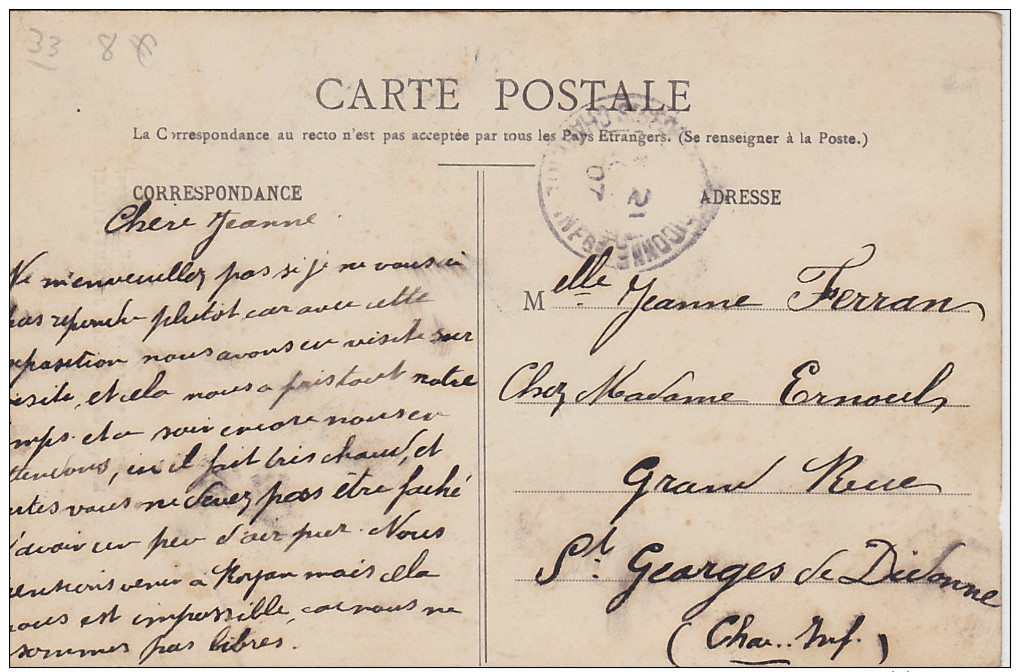 33 8
CARTE POSTALE
La Correspondance au recto n'est pas acceptée par tous les Pays Etrangers. (Se renseigner à la Poste.)
CORRESPONDANCE
Chere Jeanne.
m'enveuillez pas si je ne vous ai
pas repondu plutôt car avec cette
xposition nous avons eu visite sur
visite, et cela nous a pris tout notre
emps. et ce soir encore nous en
ttendons, ici il fait très chaud, et
ertes vous ne devez pass être faché
d'avoir un peu d'air pur. Nous
pensions venir a Royan mais cela
nous est impossible, car nous ne
sommes pas libres.
21
07
ADRESSE
Melle Jeanne Ferran
Chez Madame Ernouls
Grand Rue
St. Georges de Didonne
(Cha.. Inf.)